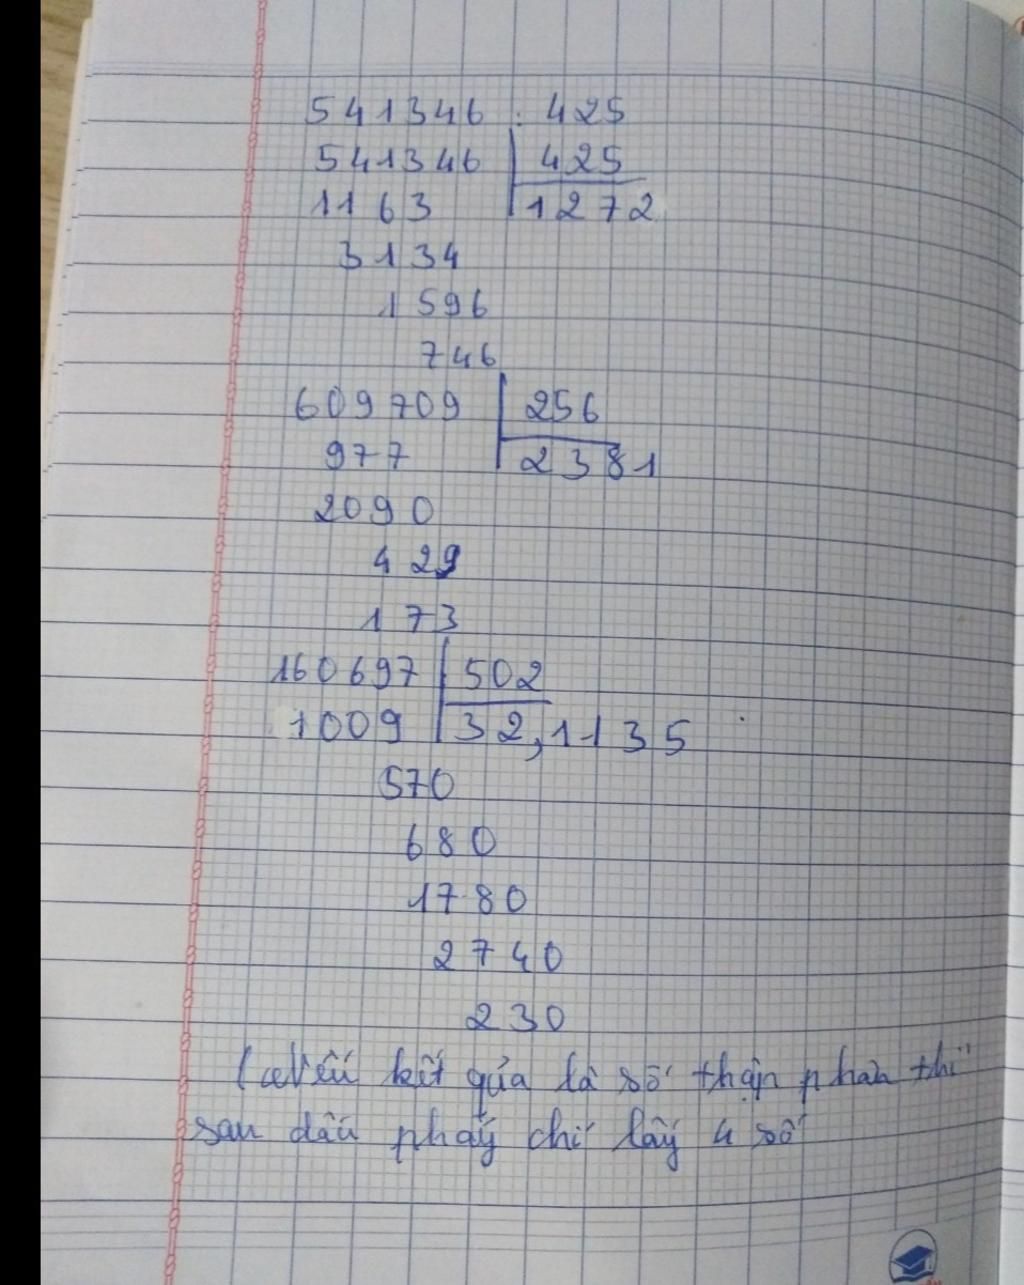 541346 : 425
541346 425
1163 1272
3134
1596
746
609709 256
977 2381
2090
429
173
160697 502
1009 32,1135
570
680
1780
2740
230
(Nếu kết qủa là số thập phân thì
sau dấu phảy chỉ lấy 4 số